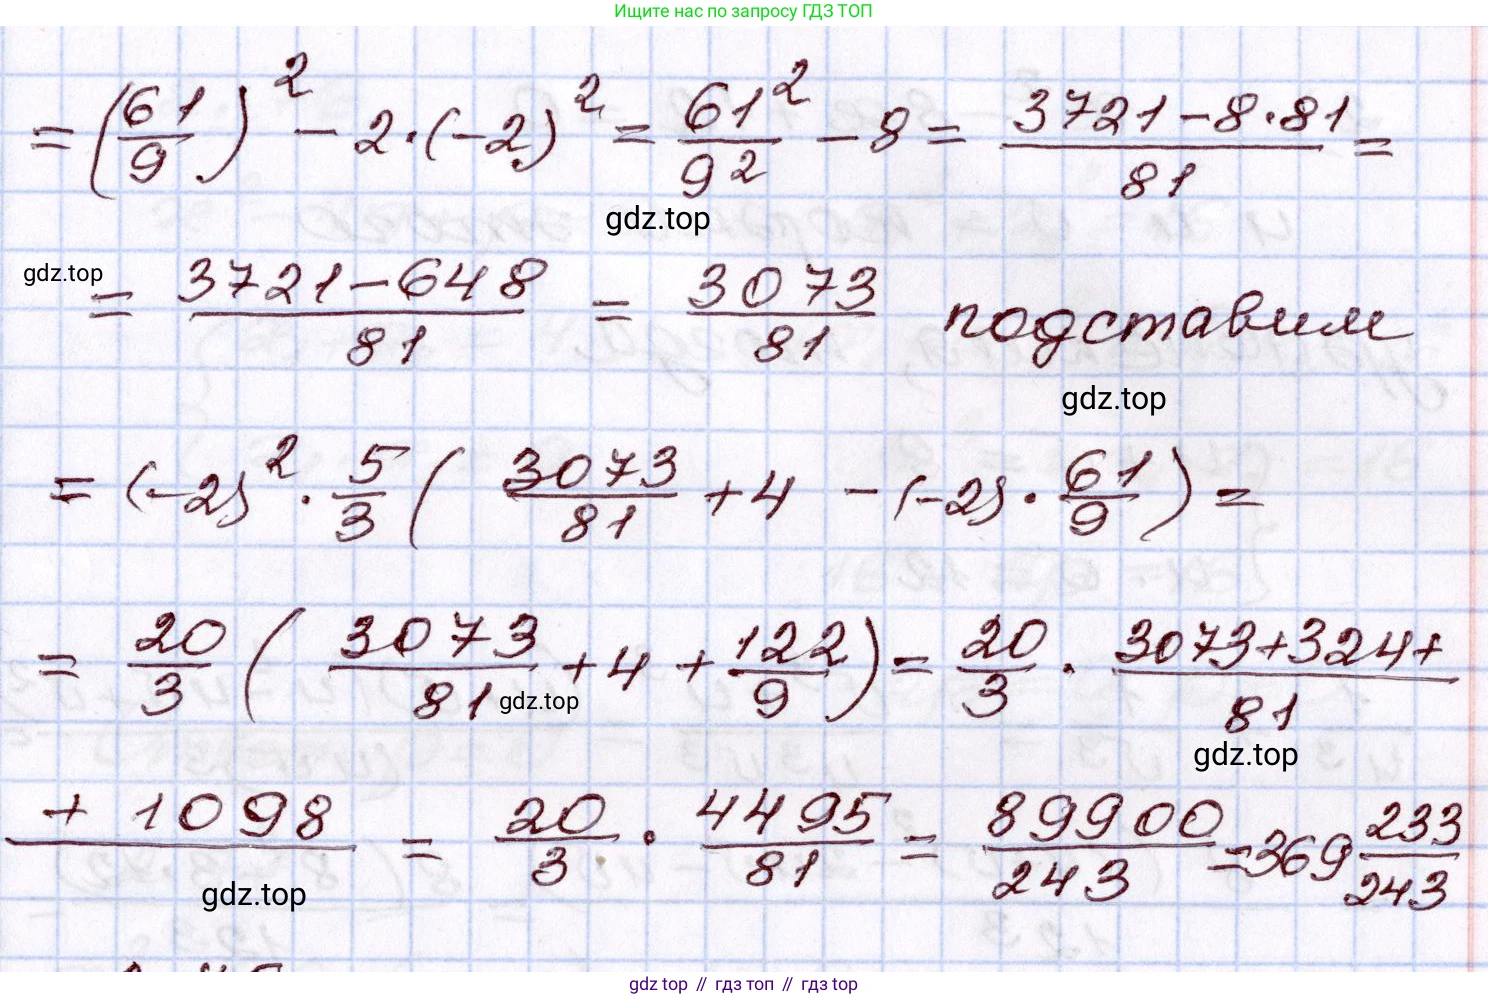 Ищите нас по запросу ГДЗ ТОП
= (61/9)² - 2·(-2)² = 61²/9² - 8 = (3721 - 8·81)/81 =
gdz.top
gdz.top
= (3721 - 648)/81 = 3073/81 подставим
gdz.top
= (-2)² · 5/3 (3073/81 + 4 - (-2) · 61/9) =
= 20/3 (3073/81 + 4 + 122/9) = 20/3 · (3073 + 324 +)/81
gdz.top
gdz.top
+ 1098 = 20/3 · 4495/81 = 89900/243 = 369 233/243
gdz.top
gdz top // гдз топ // гдз top